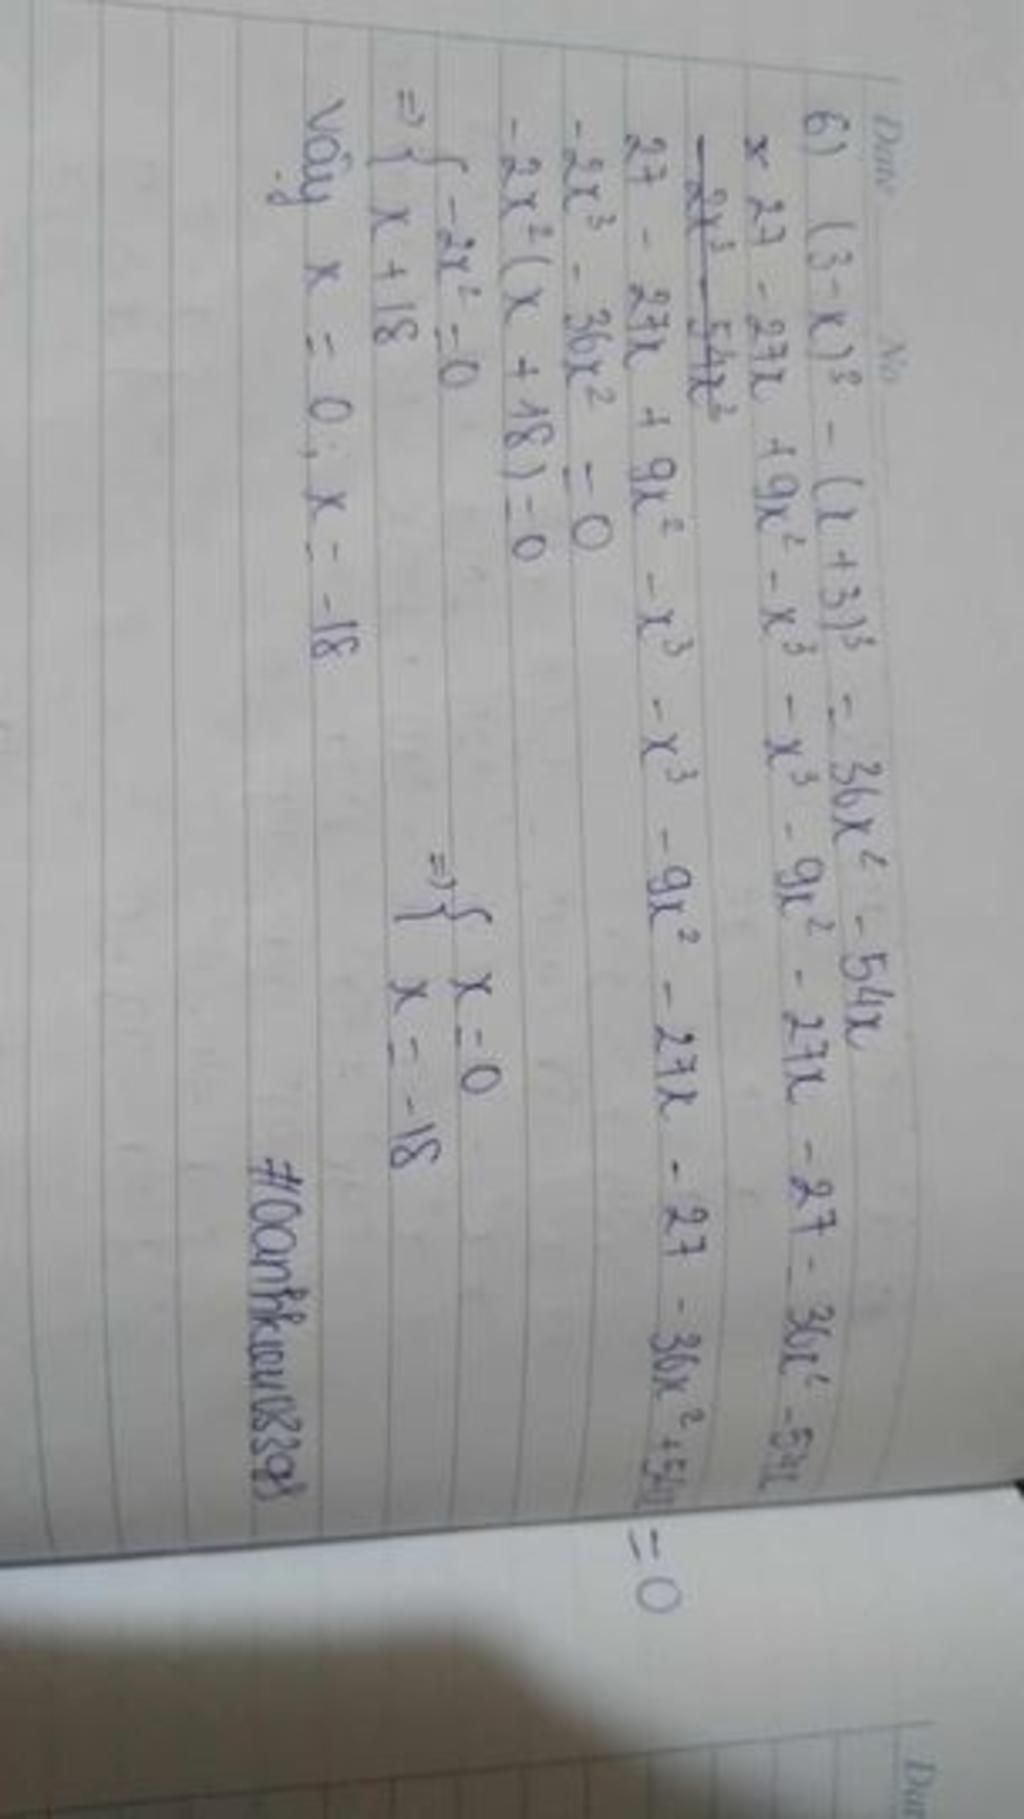 Date No
6) (3-x)³ - (x+3)³ = 36x² - 54x
x 27 - 27x + 9x² - x³ - x³ - 9x² - 27x - 27 = 36x² - 54x
- 2x³ - 54x²
27 - 27x + 9x² - x³ - x³ - 9x² - 27x - 27 - 36x² + 54x = 0
-2x³ - 36x² = 0
-2x² (x + 18) = 0
=> { -2x² = 0 => { x = 0
x + 18 x = -18
Vậy x = 0; x = -18